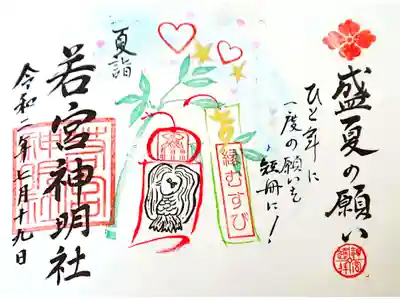 盛夏の願い
ひと年に
一度の願いを
短冊に!
縁むすび
夏詣
若宮神明社
令和二年七月十九日